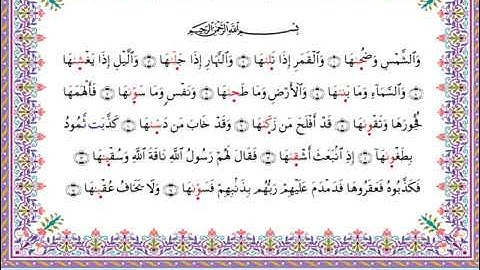 بِسْمِ ٱللَّهِ ٱلرَّحْمَٰنِ ٱلرَّحِيمِ
وَٱلشَّمْسِ وَضُحَىٰهَا ۝ وَٱلْقَمَرِ إِذَا تَلَىٰهَا ۝ وَٱلنَّهَارِ إِذَا جَلَّىٰهَا ۝ وَٱلَّيْلِ إِذَا يَغْشَىٰهَا
۝ وَٱلسَّمَآءِ وَمَا بَنَىٰهَا ۝ وَٱلْأَرْضِ وَمَا طَحَىٰهَا ۝ وَنَفْسٍ وَمَا سَوَّىٰهَا ۝ فَأَلْهَمَهَا
فُجُورَهَا وَتَقْوَىٰهَا ۝ قَدْ أَفْلَحَ مَن زَكَّىٰهَا ۝ وَقَدْ خَابَ مَن دَسَّىٰهَا ۝ كَذَّبَتْ ثَمُودُ
بِطَغْوَىٰهَآ ۝ إِذِ ٱنۢبَعَثَ أَشْقَىٰهَا ۝ فَقَالَ لَهُمْ رَسُولُ ٱللَّهِ نَاقَةَ ٱللَّهِ وَسُقْيَىٰهَا ۝
فَكَذَّبُوهُ فَعَقَرُوهَا فَدَمْدَمَ عَلَيْهِمْ رَبُّهُم بِذَنۢبِهِمْ فَسَوَّىٰهَا ۝ وَلَا يَخَافُ عُقْبَىٰهَا ۝